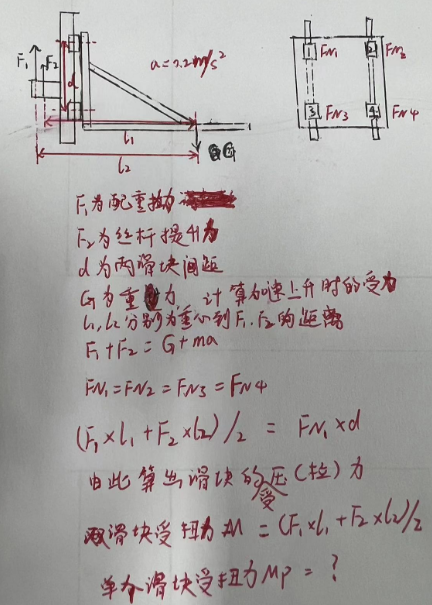 F₁ F₂ d a=2.2m/s²
l₁
l₂ G
1 FN₁ 2 FN₂
3 FN3 4 FN4
F₁为配重拉力
F₂为丝杆提升力
d为两滑块间距
G为重力，计算加速上升时的受力
l₁,l₂分别为重心到F₁、F₂的距离
F₁+F₂=G+ma
FN₁=FN2=FN3=FN4
(F₁×l₁+F₂×l2)/2 = FN₁×d
由此算出滑块的受压(拉)力
双滑块受扭力M=(F₁×l₁+F₂×l2)/2
单个滑块受扭力Mp=?